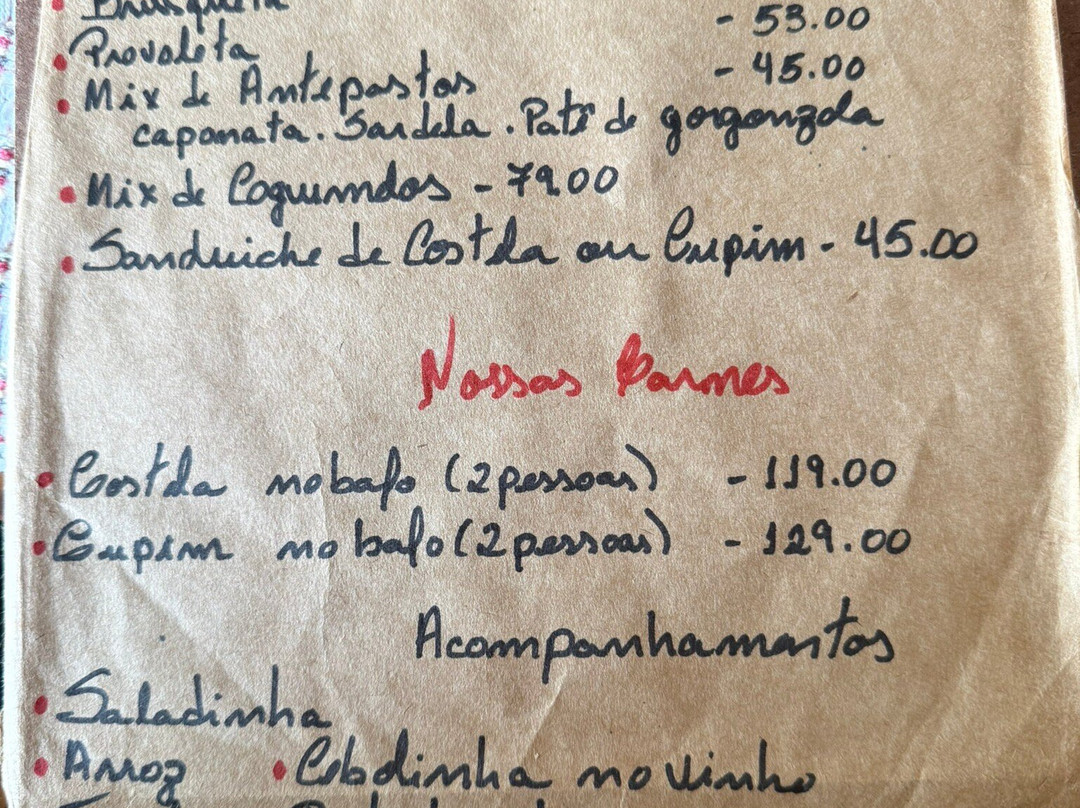 • Brusqueta - 53.00
• Provoleta - 45.00
• Mix de Antepastos
caponata. Sardela. Patê de gorgonzola
• Mix de Cogumelos - 79.00
• Sanduiche de Costela ou Cupim - 45.00
Nossas Carnes
• Costela no bafo (2 pessoas) - 119.00
• Cupim no bafo (2 pessoas) - 129.00
Acompanhamentos
• Saladinha
• Arroz • Cebolinha no vinho